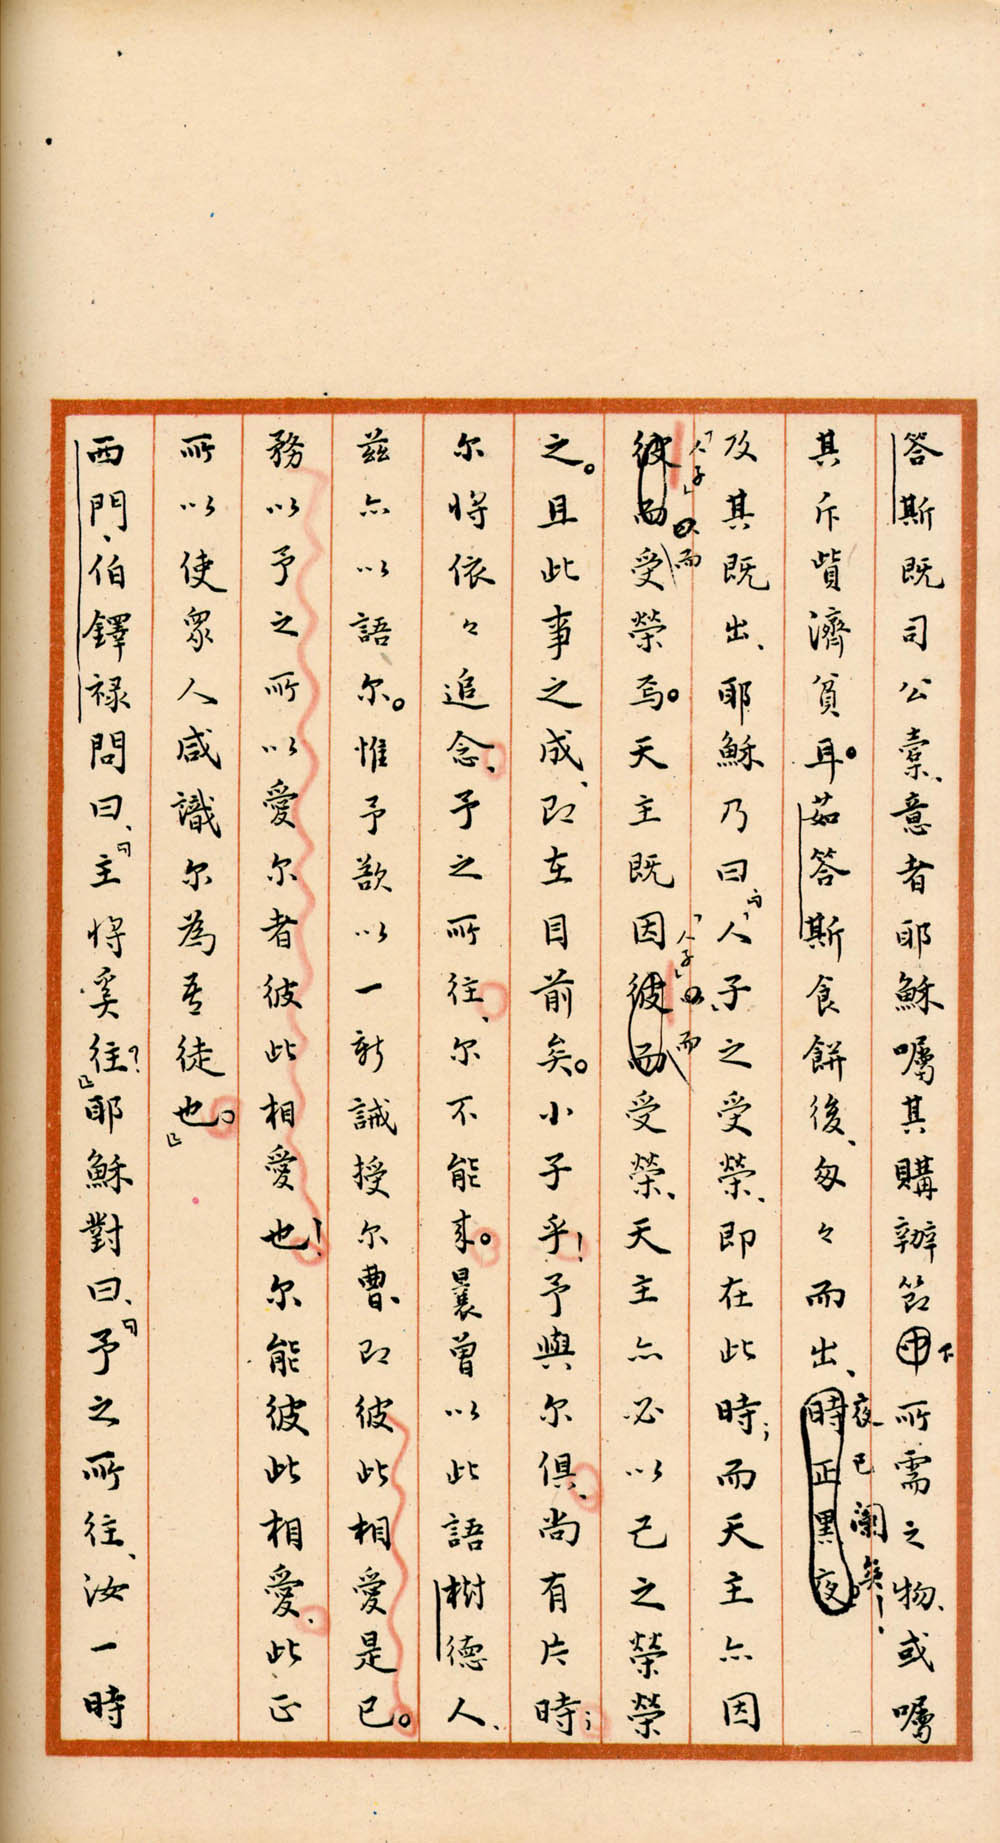 答斯既司公橐、意者耶穌囑其購辦節中下所需之物、或囑
其斥貲濟貧耳。茹答斯食餅後、匆々而出、時正黑夜。夜已闌矣！
及其既出、耶穌乃曰、『「人子」之受榮、即在此時；而天主亦因
彼而「人子」而受榮焉。天主既因彼而「人子」而受榮、天主亦必以己之榮榮
之。且此事之成、即在目前矣。小子乎！予與尔俱、尚有片時；
尔將依々追念、予之所往、尔不能來。曩曾以此語樹德人、
茲亦以語尔。惟予欲以一新誡授尔曹、即彼此相愛是已。
務以予之所以愛尔者彼此相愛也！尔能彼此相愛、此正
所以使眾人咸識尔為吾徒也。』
西門、伯鐸祿問曰、『主將奚往？』耶穌對曰、『予之所往、汝一時